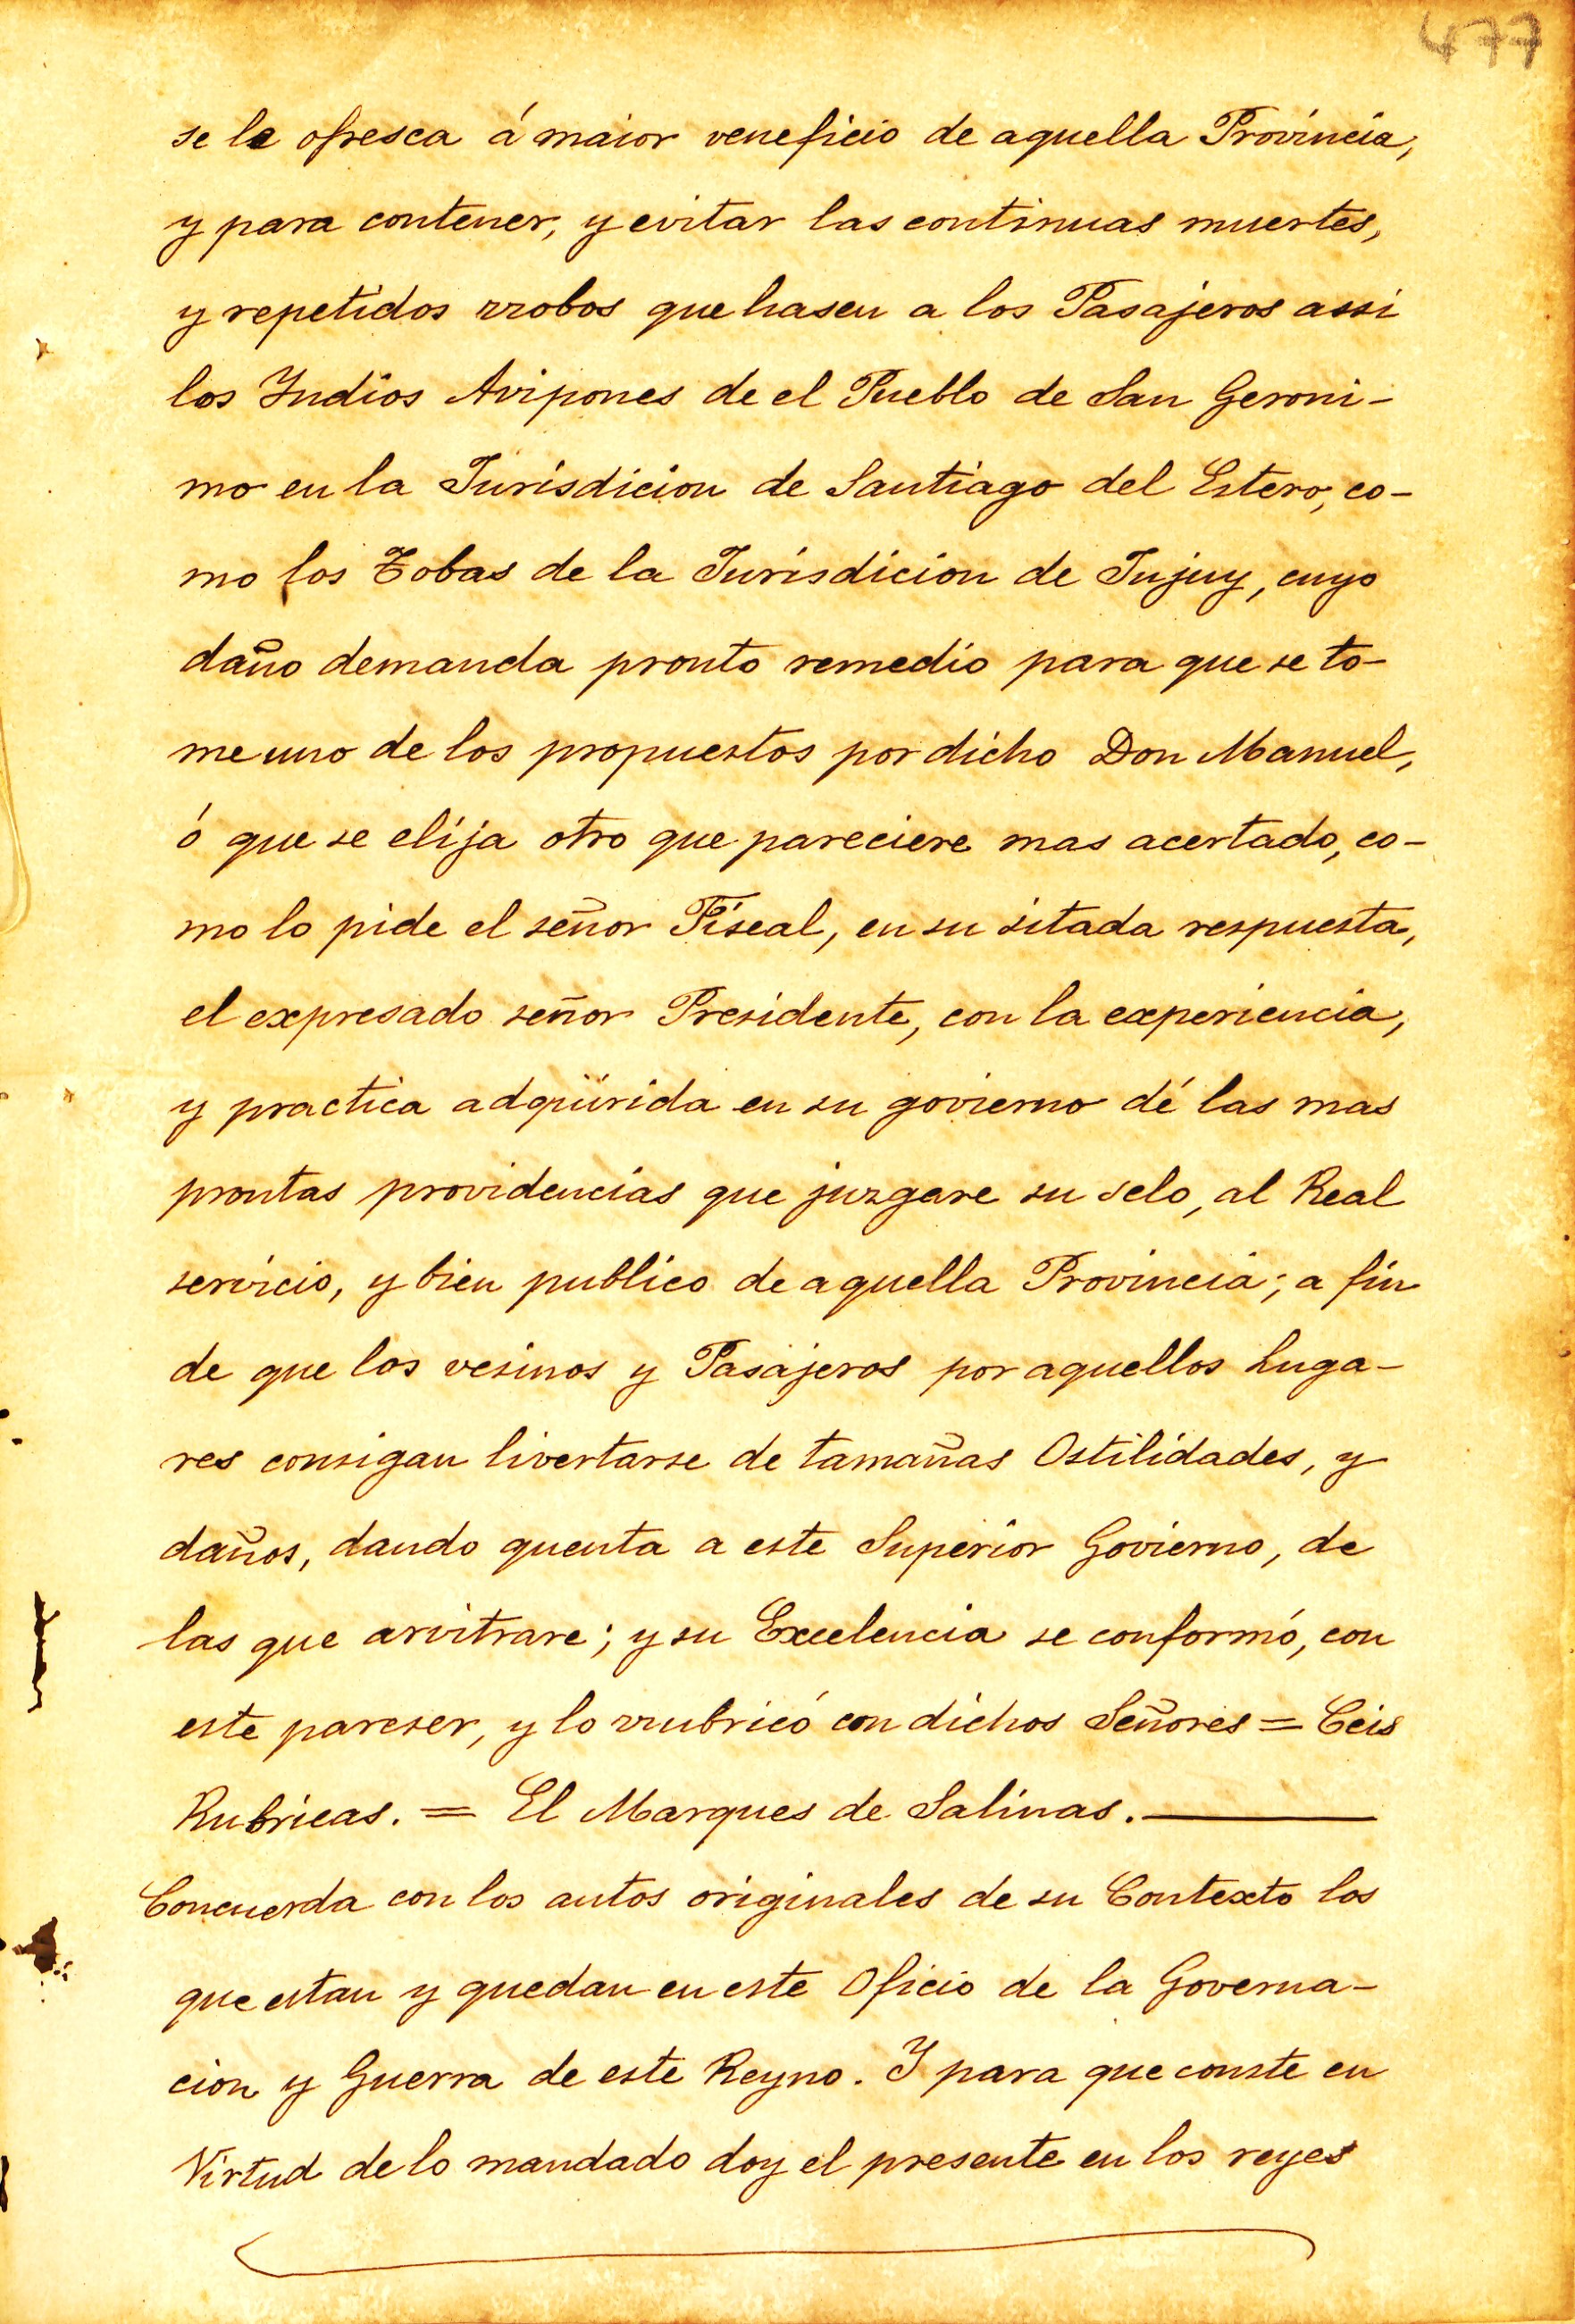 477
se le ofresca á maior veneficio de aquella Provincia,
y para contener, y evitar las continuas muertes,
y repetidos rrobos que hasen a los Pasajeros assi
los Yndios Avipones de el Pueblo de San Geroni-
mo en la Jurisdicion de Santiago del Estero, co-
mo los Tobas de la Jurisdicion de Jujuy, cuyo
daño demanda pronto remedio para que se to-
me uno de los propuestos por dicho Don Manuel,
ó que se elija otro que pareciere mas acertado, co-
mo lo pide el señor Fiscal, en su sitada respuesta,
el expresado señor Presidente, con la experiencia,
y practica adqüirida en su govierno dé las mas
prontas providencias que juzgare su selo, al Real
servicio, y bien publico de aquella Provincia; a fin
de que los vesinos y Pasajeros por aquellos Luga-
res consigan livertarse de tamañas Ostilidades, y
daños, dando quenta a este Superior Govierno, de
las que arvitrare; y su Excelencia se conformó, con
este pareser, y lo rrubricó con dichos Señores = Ceis
Rubricas. = El Marques de Salinas.
Concuerda con los autos originales de su Contexto los
que estan y quedan en este Oficio de la Governa-
cion y Guerra de este Reyno. Y para que conste en
Virtud de lo mandado doy el presente en los reyes